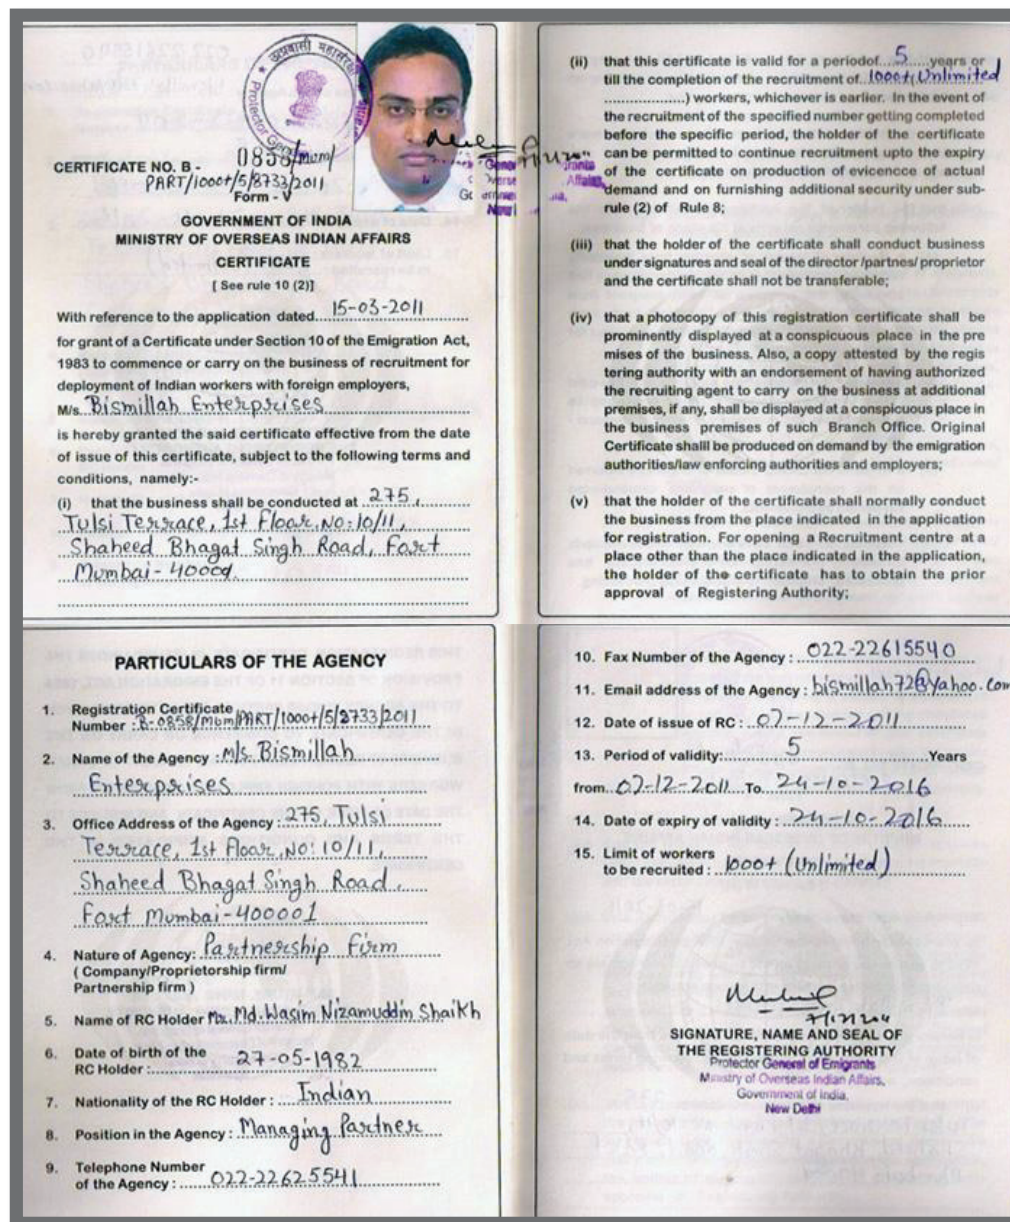 अप्रवासी
Protector
CERTIFICATE NO. B - 0858/mum/
PART/1000+/5/8733/2011
Form - V
GOVERNMENT OF INDIA
MINISTRY OF OVERSEAS INDIAN AFFAIRS
CERTIFICATE
[ See rule 10 (2)]
With reference to the application dated 15-03-2011
for grant of a Certificate under Section 10 of the Emigration Act,
1983 to commence or carry on the business of recruitment for
deployment of Indian workers with foreign employers,
M/s. Bismillah Enterprises
is hereby granted the said certificate effective from the date
of issue of this certificate, subject to the following terms and
conditions, namely:-
(i) that the business shall be conducted at 275,
Tulsi Terrace, 1st Floor, No: 10/11,
Shaheed Bhagat Singh Road, Fort
Mumbai-
(ii) that this certificate is valid for a periodof 5 years or
till the completion of the recruitment of 1000+(Unlimited
) workers, whichever is earlier. In the event of
the recruitment of the specified number getting completed
before the specific period, the holder of the certificate
can be permitted to continue recruitment upto the expiry
of the certificate on production of evicence of actual
demand and on furnishing additional security under sub-
rule (2) of Rule 8;
(iii) that the holder of the certificate shall conduct business
under signatures and seal of the director /partnes/ proprietor
and the certificate shall not be transferable;
(iv) that a photocopy of this registration certificate shall be
prominently displayed at a conspicuous place in the pre
mises of the business. Also, a copy attested by the regis
tering authority with an endorsement of having authorized
the recruiting agent to carry on the business at additional
premises, if any, shall be displayed at a conspicuous place in
the business premises of such Branch Office. Original
Certificate shalll be produced on demand by the emigration
authorities/law enforcing authorities and employers;
(v) that the holder of the certificate shall normally conduct
the business from the place indicated in the application
for registration. For opening a Recruitment centre at a
place other than the place indicated in the application,
the holder of the certificate has to obtain the prior
approval of Registering Authority;
PARTICULARS OF THE AGENCY
1. Registration Certificate
Number : B-0858/Mbm/PART/1000+/5/8733/2011
2. Name of the Agency : M/s. Bismillah
Enterprises
3. Office Address of the Agency : 275, Tulsi
Terrace, 1st Floor, No: 10/11,
Shaheed Bhagat Singh Road,
Fort Mumbai-400001
4. Nature of Agency: Partnership Firm
( Company/Proprietorship firm/
Partnership firm )
5. Name of RC Holder Mr. Md. Wasim Nizamuddin Shaikh
6. Date of birth of the
RC Holder : 27-05-1982
7. Nationality of the RC Holder : Indian
8. Position in the Agency : Managing Partner
9. Telephone Number
of the Agency : 022-22625541
10. Fax Number of the Agency : 022-22615540
11. Email address of the Agency : bismillah72@yahoo.com
12. Date of issue of RC : 07-12-2011
13. Period of validity: 5 Years
from 07-12-2011 To 24-10-2016
14. Date of expiry of validity : 24-10-2016
15. Limit of workers
to be recruited : 1000+ (Unlimited)
SIGNATURE, NAME AND SEAL OF
THE REGISTERING AUTHORITY
Protector General of Emigrants
Ministry of Overseas Indian Affairs,
Government of India,
New Delhi